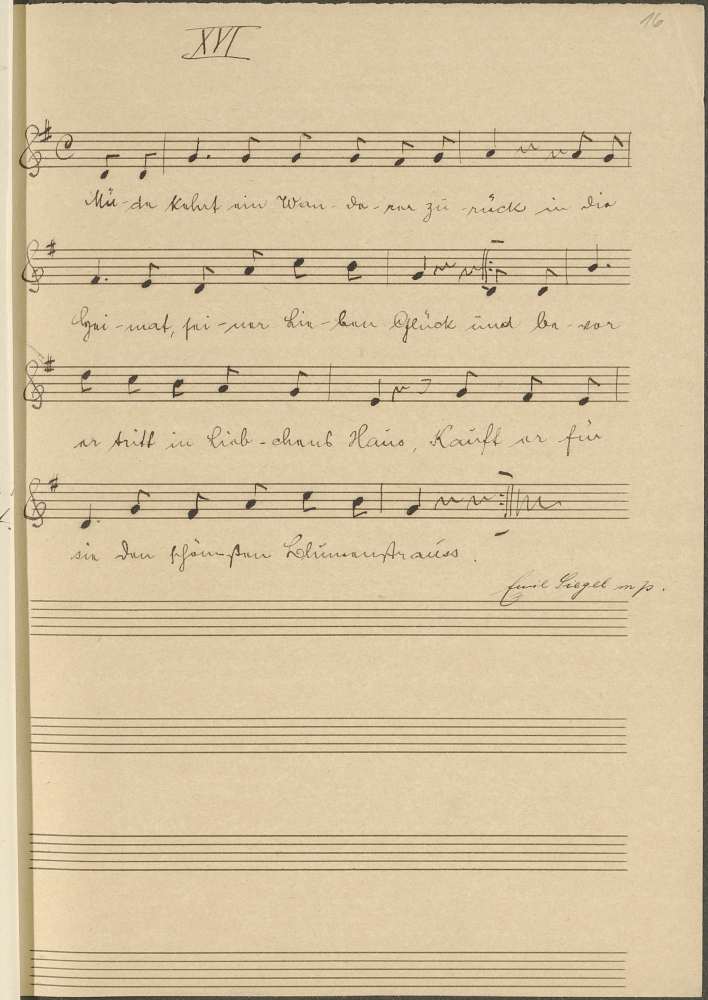 16
XVI
Mü-de kehrt ein Wan-de-rer zu-rück in die
Hei-mat, sei-ner Lie-ben Glück und be-vor
er tritt in Lieb-chens Haus, Kauft er für
sie den schön-sten Blumenstrauss.
Emil Siegel m p.